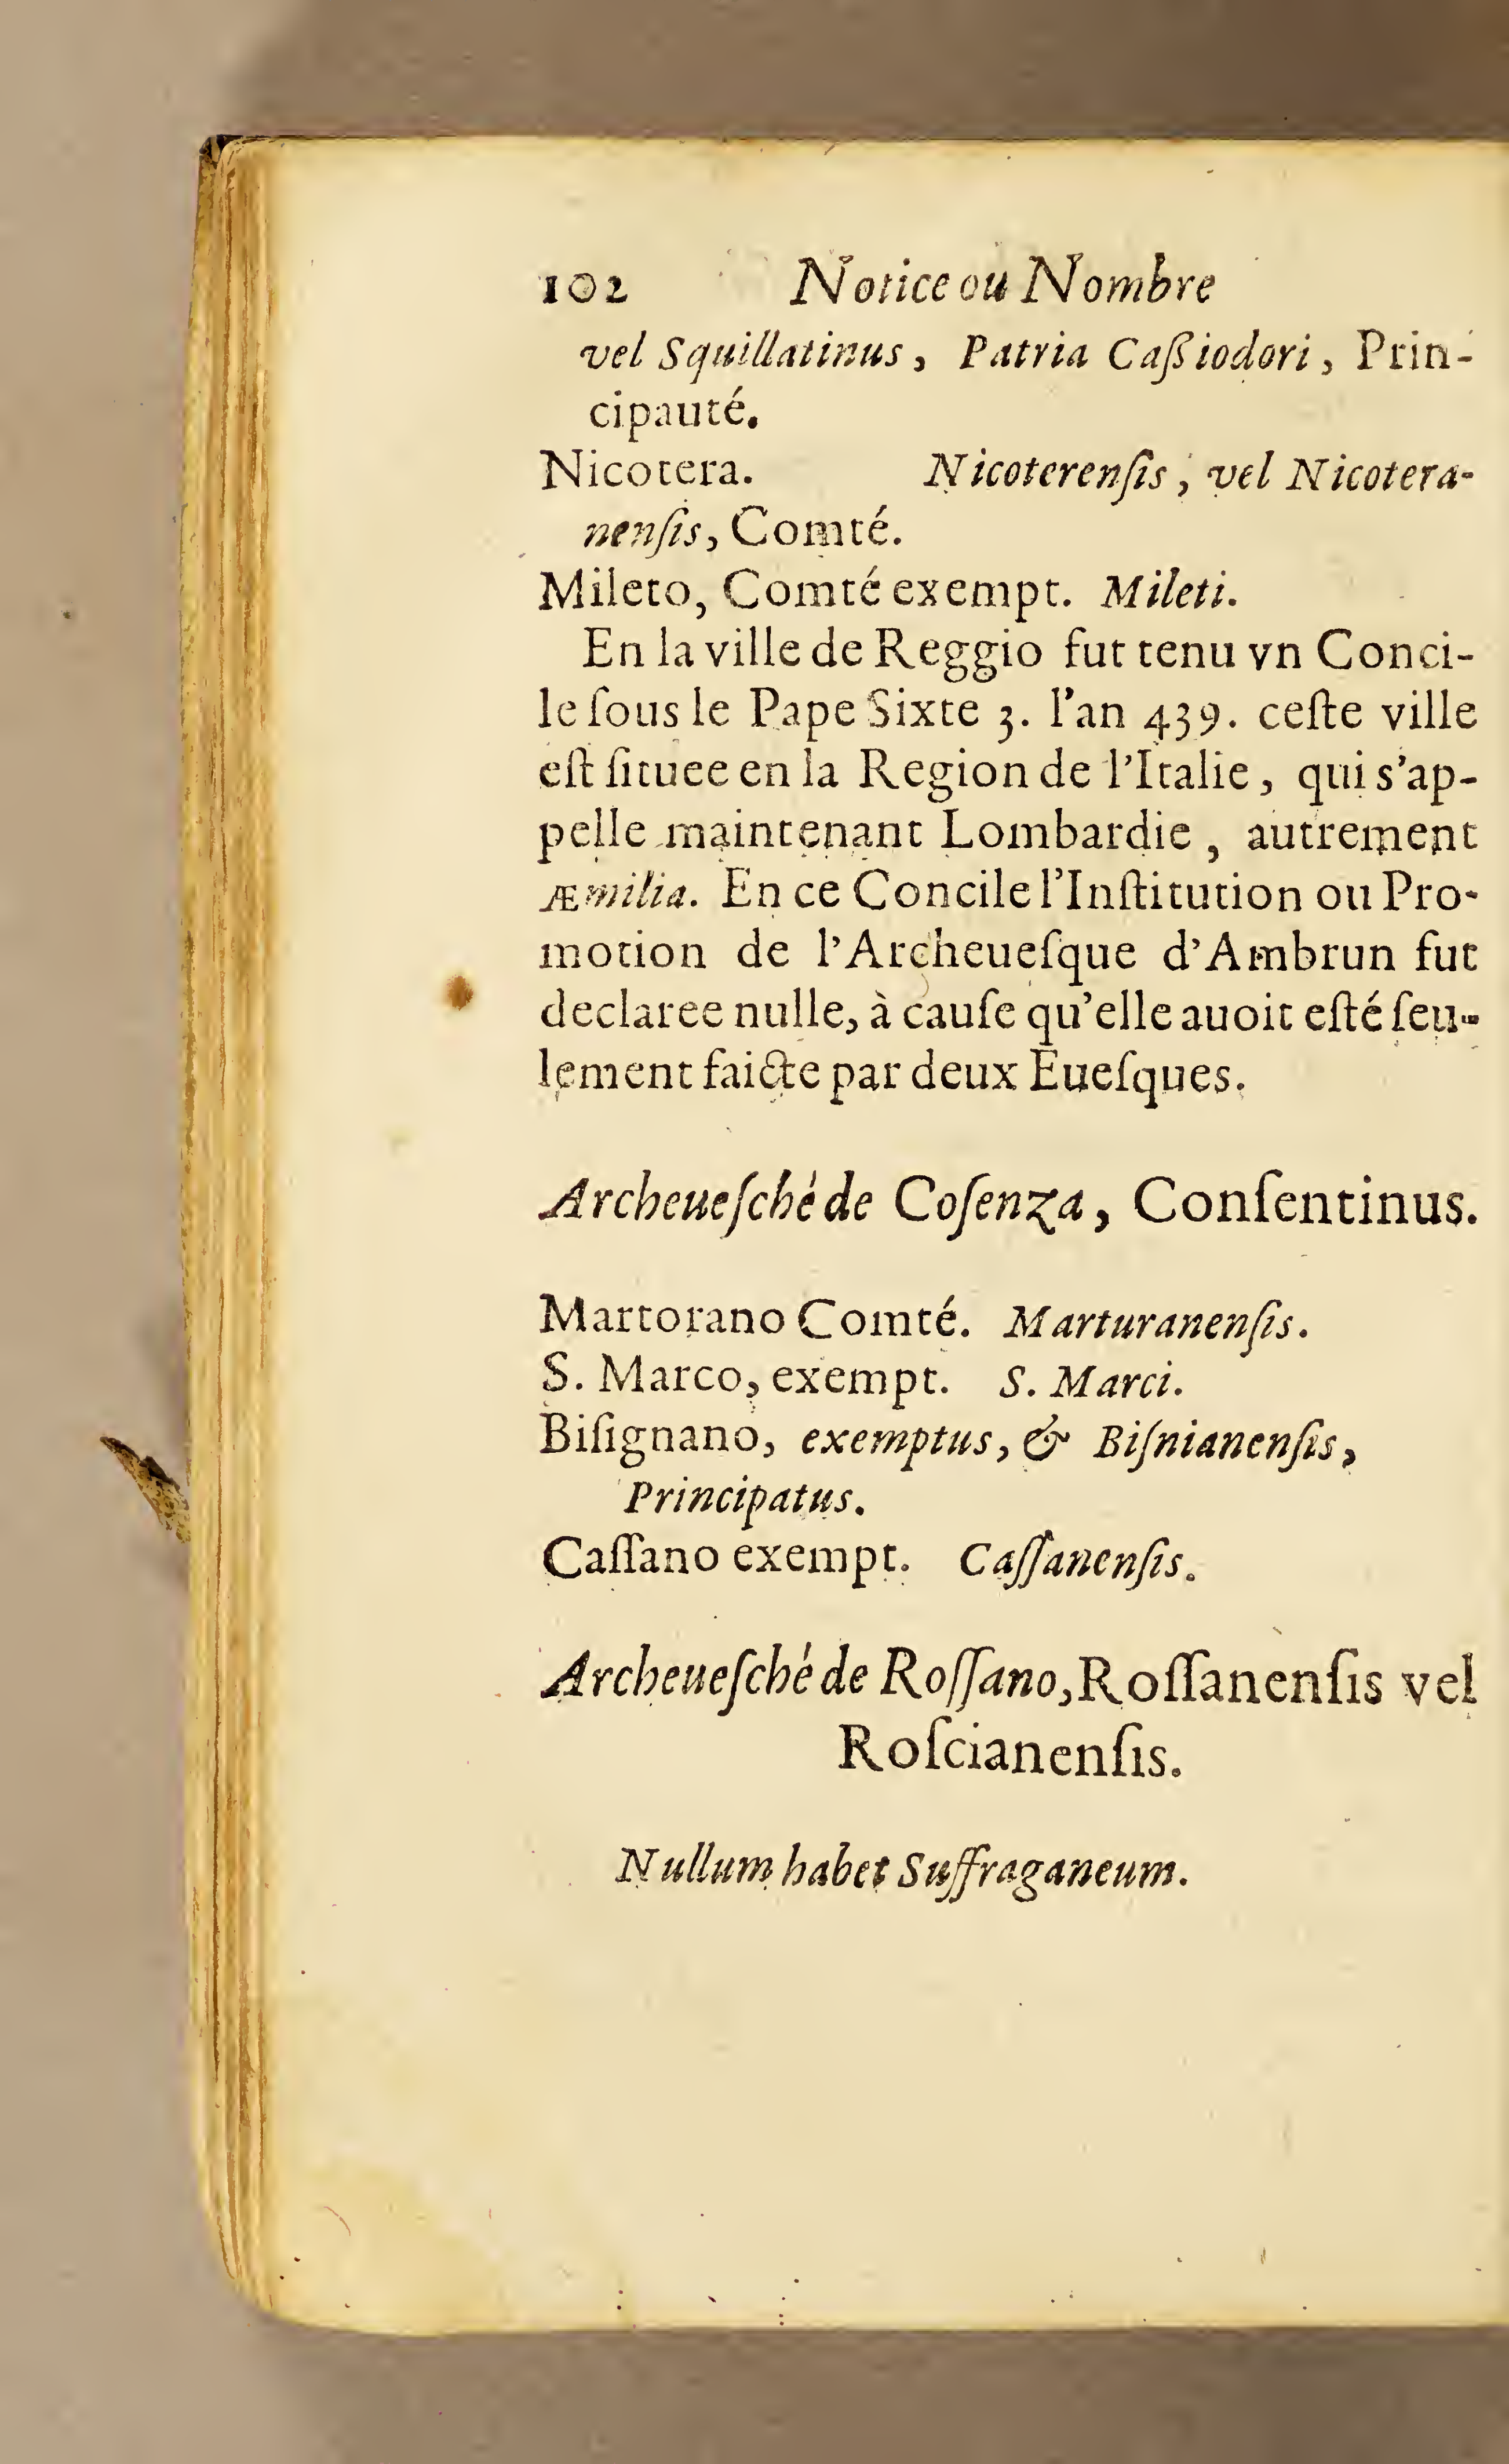 102 Notice ou Nombre
vel Squillatinus, Patria Caßiodori, Prin-
cipauté.
Nicotera. Nicoterenſis, vel Nicotera-
nenſis, Comté.
Mileto, Comté exempt. Mileti.
En la ville de Reggio fut tenu vn Conci-
le ſous le Pape Sixte 3. l'an 439. ceſte ville
eſt ſituee en la Region de l'Italie, qui s'ap-
pelle maintenant Lombardie, autrement
Æmilia. En ce Concile l'Inſtitution ou Pro-
motion de l'Archeueſque d'Ambrun fut
declaree nulle, à cauſe qu'elle auoit eſté ſeu-
lement faicte par deux Eueſques.
Archeueſché de Coſenza, Conſentinus.
Martorano Comté. Marturanenſis.
S. Marco, exempt. S. Marci.
Biſignano, exemptus, & Biſnianenſis,
Principatus.
Caſſano exempt. Caſſanenſis.
Archeueſché de Roſſano, Roſſanenſis vel
Roſcianenſis.
Nullum habet Suffraganeum.